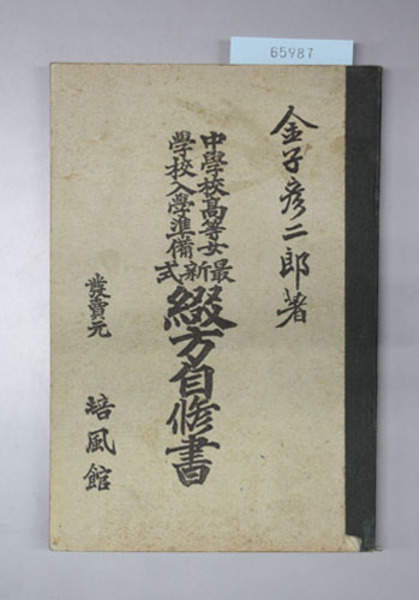 65987
金子彦二郎著
中學校高等女
學校入學準備
最新式
綴方自修書
發賣元 培風館